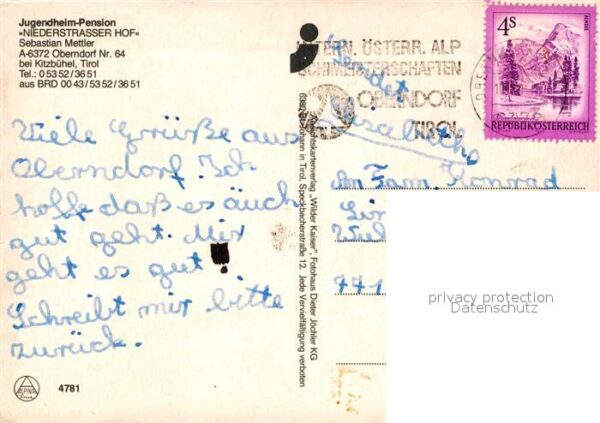 Jugendheim-Pension
»NIEDERSTRASSER HOF«
Sebastian Mettler
A-6372 Oberndorf Nr. 64
bei Kitzbühel, Tirol
Tel.: 0 53 52 / 36 51
aus BRD 00 43 / 53 52 / 36 51
Viele Grüße aus
Oberndorf. Ich
hoffe daß es äuch
gut geht. Mir
geht es gut!
Schreibt mir bitte
zurück.
4781
Ansichtskartenverlag „Wilder Kaiser", Fotohaus Dieter Jöchler KG
in Tirol, Speckbacherstraße 12. Jede Vervielfältigung verboten
INTERN. ÖSTERR. ALP
SCHIMEISTERSCHAFTEN
OBERNDORF
TIROL
4S
REPUBLIK ÖSTERREICH
An Fam. Konrad
privacy protection
Datenschutz